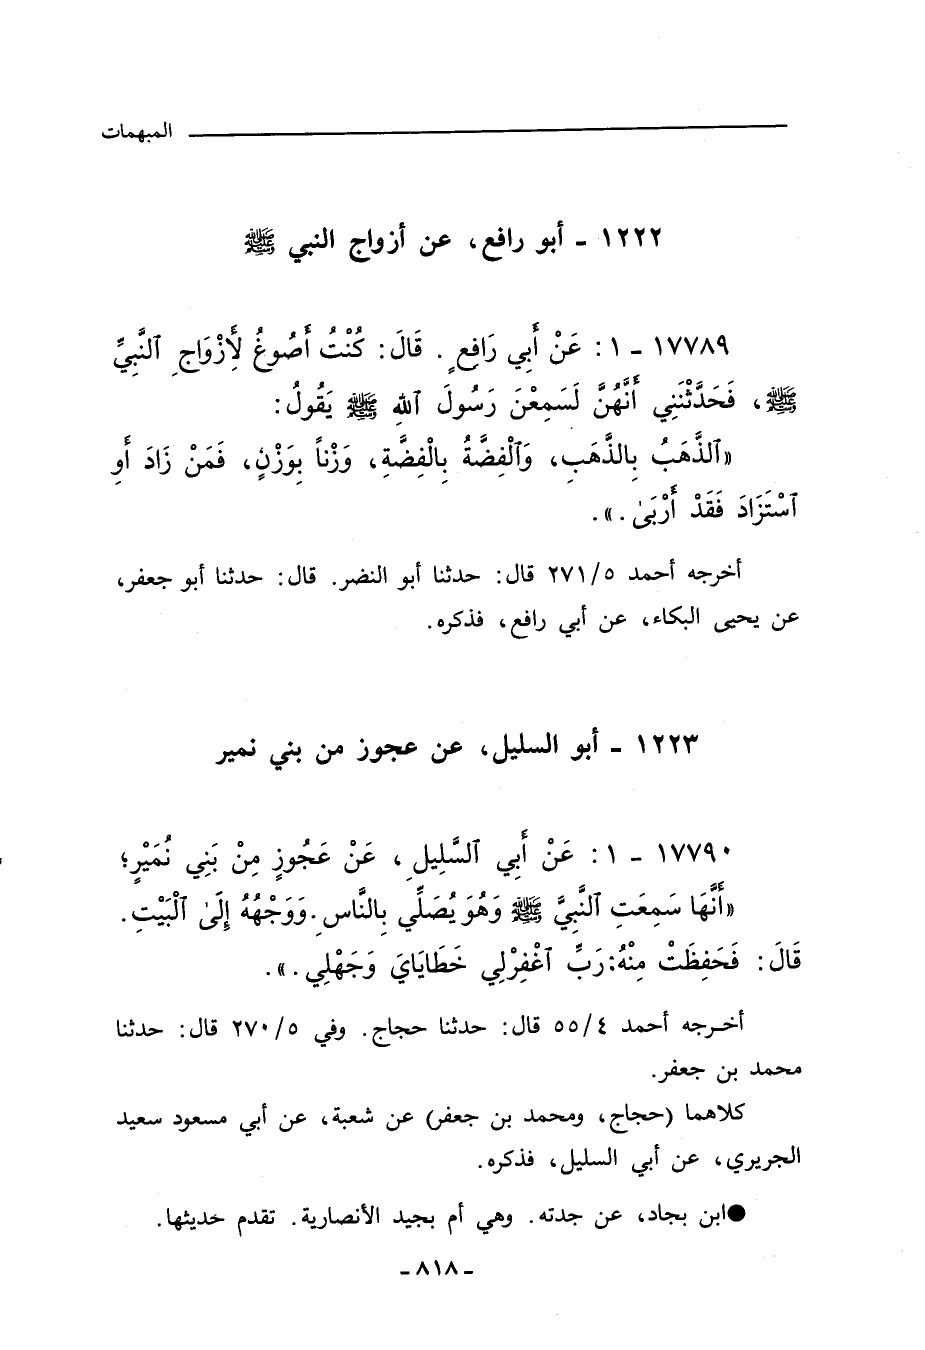 المبهمات
١٢٢٢ - أبو رافع، عن أزواج النبي ﷺ
١٧٧٨٩ - ١ : عَنْ أَبِي رَافِعٍ . قَالَ: كُنْتُ أَصُوغُ لِأَزْوَاجِ ٱلنَّبِيِّ
ﷺ، فَحَدَّثْنَنِي أَنَّهُنَّ لَسَمِعْنَ رَسُولَ ٱللهِ ﷺ يَقُولُ:
«ٱلذَّهَبُ بِالذَّهَبِ، وَٱلْفِضَّةُ بِالْفِضَّةِ، وَزْناً بِوَزْنٍ، فَمَنْ زَادَ أَوِ
ٱسْتَزَادَ فَقَدْ أَرْبَىٰ.».
أخرجه أحمد ٢٧١/٥ قال: حدثنا أبو النضر. قال: حدثنا أبو جعفر،
عن يحيى البكاء، عن أبي رافع، فذكره.
١٢٢٣ - أبو السليل، عن عجوز من بني نمير
١٧٧٩٠ - ١ : عَنْ أَبِي ٱلسَّلِيلِ، عَنْ عَجُوزٍ مِنْ بَنِي نُمَيْرٍ؛
«أَنَّهَا سَمِعَتِ ٱلنَّبِيَّ ﷺ وَهُوَ يُصَلِّي بِالنَّاسِ. وَوَجْهُهُ إِلَىٰ ٱلْبَيْتِ.
قَالَ: فَحَفِظَتْ مِنْهُ: رَبِّ ٱغْفِرْلِي خَطَايَايَ وَجَهْلِي.».
أخرجه أحمد ٥٥/٤ قال: حدثنا حجاج. وفي ٢٧٠/٥ قال: حدثنا
محمد بن جعفر.
كلاهما (حجاج، ومحمد بن جعفر) عن شعبة، عن أبي مسعود سعيد
الجريري، عن أبي السليل، فذكره.
●ابن بجاد، عن جدته. وهي أم بجيد الأنصارية. تقدم حديثها.
- ٨١٨ -